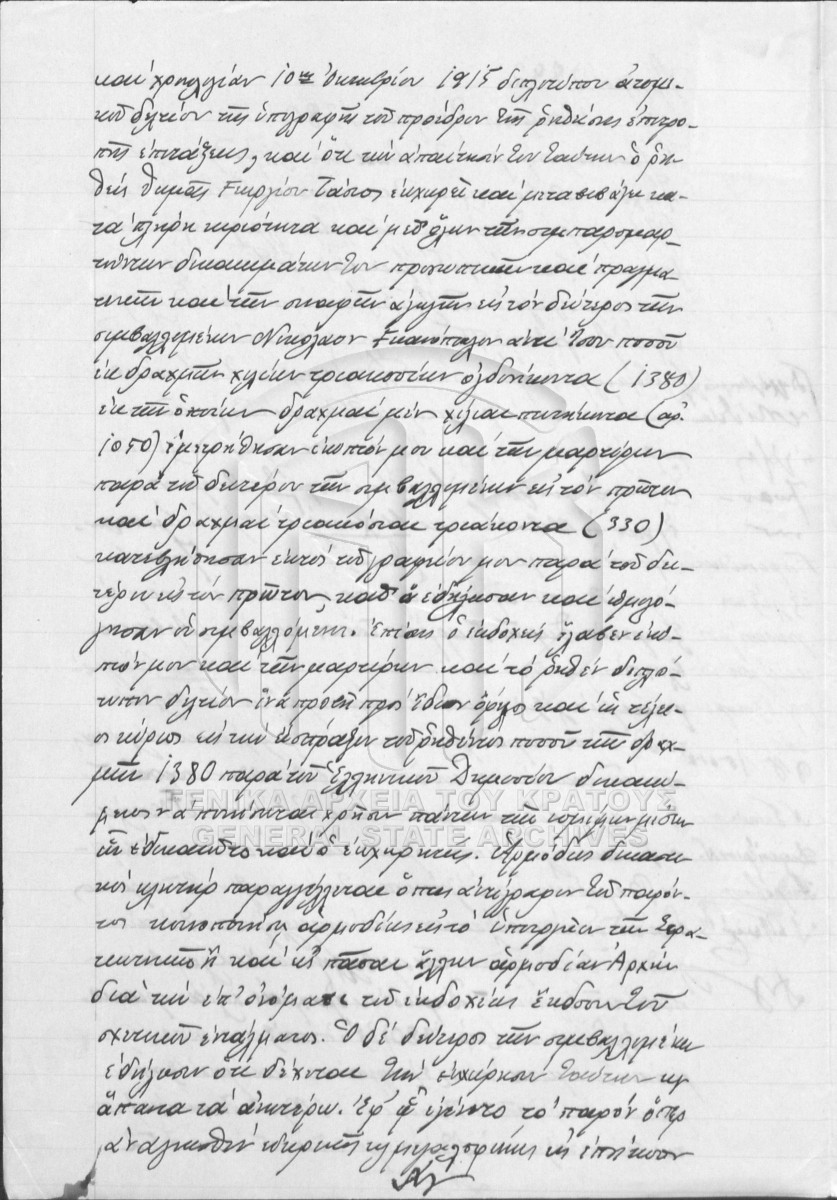 και χρονολογίαν 10ην Οκτωβρίου 1915 διπλοτύπου ατομι-
κού δελτίου της υπογραφής του προέδρου της ρηθείσης επιτρο-
πής επιτάξεως, και ότι την απαίτησίν του ταύτην ο ρη-
θείς Θωμάς Γεωργίου Τάσιος εκχωρεί και μεταβιβάζει κα-
τά πλήρη κυριότητα και μεθ' όλων των συμπαρομαρ-
τούντων δικαιωμάτων του προσωπικών και πραγμα-
τικών και των συναφών αγωγών εις τον δεύτερον των
συμβαλλομένων Νικόλαον αντί ίσου ποσού
εκ δραχμών χιλίων τριακοσίων ογδοήκοντα (1380)
εκ των οποίων δραχμαί μεν χίλιαι πεντήκοντα (αρ.
1050) εμετρήθησαν ενώπιόν μου και των μαρτύρων
παρά του δευτέρου των συμβαλλομένων εις τον πρώτον
και δραχμαί τριακόσιαι τριάκοντα (330)
κατεβλήθησαν εκτός του γραφείου μου παρά του δευ-
τέρου εις τον πρώτον, καθ' ά εδήλωσαν και ωμολό-
γησαν οι συμβαλλόμενοι. Επίσης ο εκδοχεύς έλαβεν ενώ-
πιόν μου και των μαρτύρων και το ρηθέν διπλό-
τυπον δελτίον ίνα προβή προς ίδιον όφελος και ως τέλει-
ος κύριος εις την είσπραξιν του ρηθέντος ποσού των δραχ-
μών 1380 παρά του Ελληνικού Δημοσίου δικαιού-
μενος να ποιήσηται χρήσιν πάντων των νομίμων μέσων
ών εδικαιούτο και ο εκχωρητής. Αρμόδιος δικαστι-
κός κλητήρ παραγγέλλεται όπως αντίγραφον του παρόν-
τος κοινοποιήση αρμοδίως εις το υπουργείον των Στρα-
τιωτικών ή και εις πάσαν άλλην αρμοδίαν Αρχήν
διά την επ' ονόματι του εκδοχέως έκδοσιν του
σχετικού εντάλματος. Ο δε δεύτερος των συμβαλλομένων
εδήλωσεν ότι δέχεται την εκχώρησιν ταύτην και
άπαντα τα ανωτέρω. Εφ' ώ εγένετο το παρόν όπερ
αναγνωσθέν ευκρινώς και μεγαλοφώνως εις επήκοον
ΓΕΝΙΚΑ ΑΡΧΕΙΑ ΤΟΥ ΚΡΑΤΟΥΣ
GENERAL STATE ARCHIVES